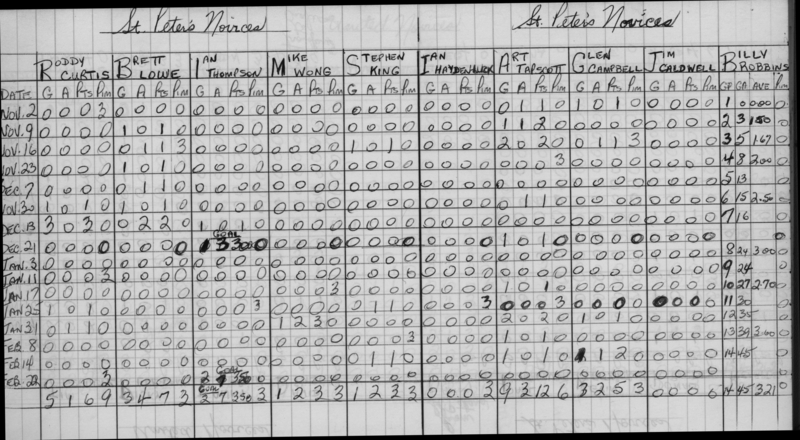 St. Peter's Novices St. Peter's Novices
RODDY BRETT IAN MIKE STEPHEN IAN ART GLEN JIM BILLY
CURTIS LOWE THOMPSON WONG KING TAPSCOTT CAMPBELL CALDWELL ROBBINS
DATES G A Pts Pim G A Pts Pim G A Pts Pim G A Pts Pim G A Pts Pim G A Pts Pim G A Pts Pim G A Pts Pim G A Pts Pim GP GA AVE Pim
NOV. 2 0 0 0 3 0 0 0 0 0 0 0 0 0 0 0 0 0 0 0 0 0 0 0 0 0 1 1 0 1 0 1 0 0 0 0 0 1 0 0.00 0
NOV. 9 0 0 0 0 1 0 1 0 0 0 0 0 0 0 0 0 0 0 0 0 0 0 0 0 1 1 2 0 0 0 0 0 0 0 0 0 2 3 1.50 0
NOV. 16 0 0 0 0 0 1 1 3 0 0 0 0 0 0 0 0 1 0 1 0 0 0 0 0 2 0 2 0 0 1 1 3 0 0 0 0 3 5 1.67 0
NOV. 23 0 0 0 0 1 0 1 0 0 0 0 0 0 0 0 0 0 0 0 0 0 0 0 0 0 0 0 3 0 0 0 0 0 0 0 0 4 8 2.00 0
DEC. 7 0 0 0 0 0 1 1 0 0 0 0 0 0 0 0 0 0 0 0 0 0 0 0 0 0 0 0 0 0 0 0 0 0 0 0 0 5 13
NOV. 30 1 0 1 0 1 0 1 0 0 0 0 0 0 0 0 0 0 0 0 0 0 0 0 0 0 1 1 0 0 0 0 0 0 0 0 0 6 15 2.50 0
DEC. 13 3 0 3 0 0 2 2 0 1 0 1 0 0 0 0 0 0 0 0 0 0 0 0 0 0 0 0 0 0 0 0 0 0 0 0 0 7 16
GOAL
DEC. 21 0 0 0 0 0 0 0 0 1 3 3.00 0 0 0 0 0 0 0 0 0 0 0 0 0 1 0 1 0 0 0 0 0 0 0 0 0
JAN. 3 0 0 0 0 0 0 0 0 0 0 0 0 0 0 0 0 0 0 0 0 0 0 0 0 0 0 0 0 0 0 0 0 0 0 0 0 8 24 3.00 0
JAN. 11 0 0 0 3 0 0 0 0 0 0 0 0 0 0 0 0 0 0 0 0 0 0 0 0 0 0 0 0 0 0 0 0 0 0 0 0 9 24
JAN 17 0 0 0 0 0 0 0 0 0 0 0 0 0 0 0 3 0 0 0 0 0 0 0 0 1 0 1 0 0 0 0 0 0 0 0 0 10 27 2.70 0
JAN 25 1 0 1 0 0 0 0 0 0 0 0 3 0 0 0 0 0 1 1 0 0 0 0 3 0 0 0 3 0 0 0 0 0 0 0 0 11 30
JAN 31 0 1 1 0 0 0 0 0 0 0 0 0 1 2 3 0 0 0 0 0 0 0 0 0 2 0 2 0 1 0 1 0 0 0 0 0 12 35
FEB. 8 0 0 0 0 0 0 0 0 0 0 0 0 0 0 0 0 0 0 0 3 0 0 0 0 1 0 1 0 0 0 0 0 0 0 0 0 13 39 3.00 0
FEB 14 0 0 0 0 0 0 0 0 0 0 0 0 0 0 0 0 0 1 1 0 0 0 0 0 1 0 1 0 1 1 2 0 0 0 0 0 14 45
GOAL
FEB. 22 0 0 0 3 0 0 0 0 2 7 3.50 0 0 0 0 0 0 0 0 0 0 0 0 0 0 0 0 0 0 0 0 0 0 0 0 0
GOAL
5 1 6 9 3 4 7 3 2 7 3.50 3 1 2 3 3 1 2 3 3 0 0 0 3 9 3 12 6 3 2 5 3 0 0 0 0 14 45 3.21 0